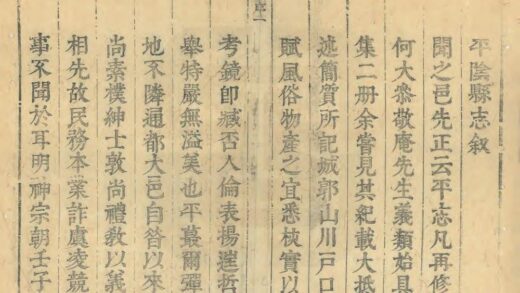 平陰縣志叙
聞之邑先正云平志凡再修
何大叅敬庵先生義類始具
集二册余嘗見其紀載大抵
述簡質所記城郭山川戶口
賦風俗物產之宜悉核實以
序一
考鏡卽臧否人倫表揚逹哲
舉特嚴無溢美也平蕞爾彈
地不隣通都大邑自昔以來
尚素樸紳士敦尚禮敎以義
相先故民務本業詐虞凌競
事不聞於耳明神宗朝壬子